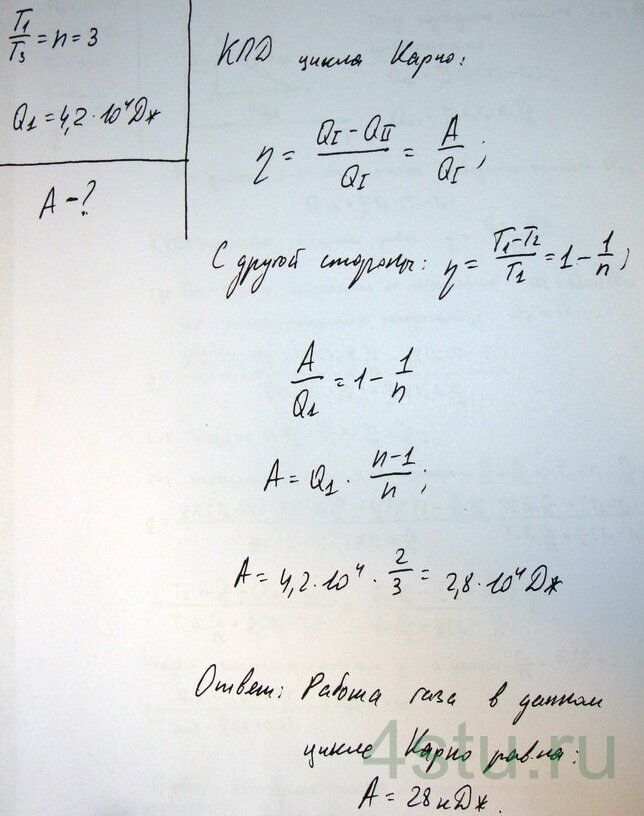 T₁/T₃ = n = 3
Q₁ = 4,2 · 10⁴ Дж
A - ?
КПД цикла Карно:
η = (Q_I - Q_II)/Q_I = A/Q_I ;
С другой стороны: η = (T₁-T₂)/T₁ = 1 - 1/n ;
A/Q₁ = 1 - 1/n
A = Q₁ · (n-1)/n ;
A = 4,2 · 10⁴ · 2/3 = 2,8 · 10⁴ Дж
Ответ: Работа газа в данном
цикле Карно равна:
A = 28 кДж.
4stu.ru